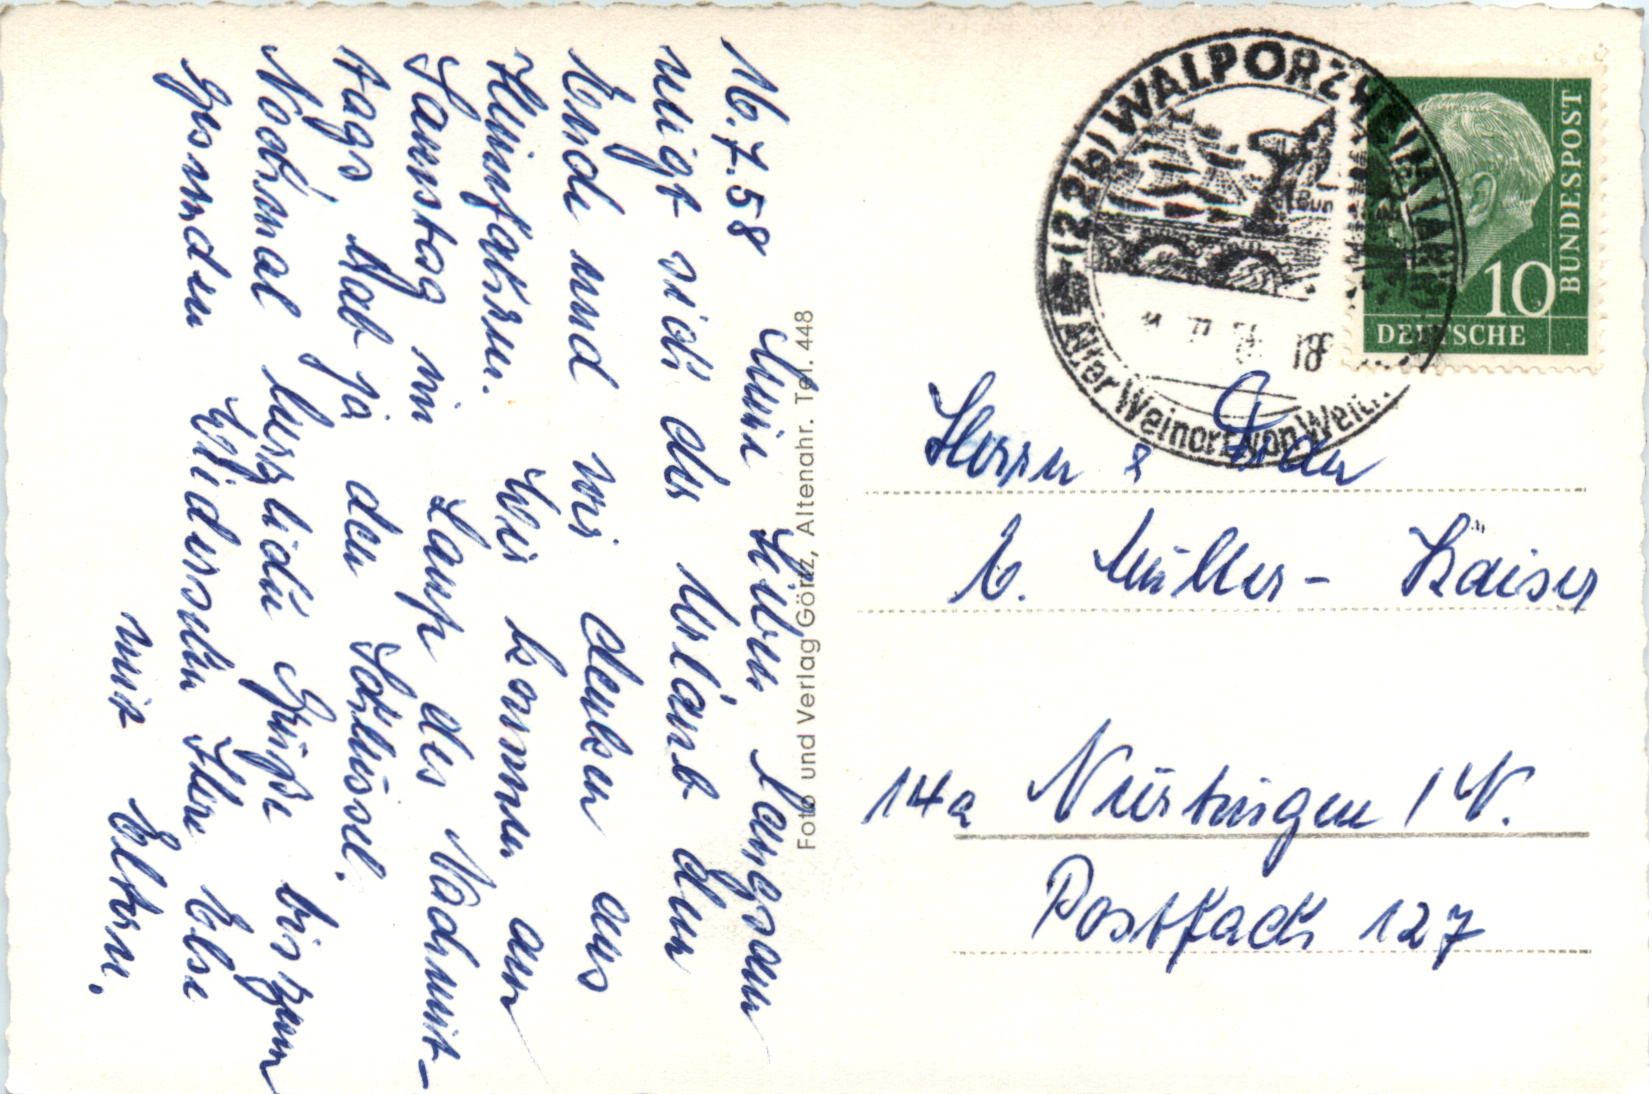 16.7.58
Meine Lieben, Langsam
neigt sich der Urlaub dem
Ende und wir denken ans
Heimfahren. Wir kommen am
Samstag im Laufe des Nachmit-
tags, Hab ja den Schlüssel.
Nochmal herzliche Grüße bis zum
gesunden Wiedersehn Ihre Else
mit Eltern.
Foto und Verlag Görtz, Altenahr. Tel. 448
(22b) WALPORZHEIM (AHR)
Alter Weinort von
18
DEUTSCHE
BUNDESPOST
10
Herrn & Frau
E. Müller-Kaiser
14a Nürtingen / W.
Postfach 127